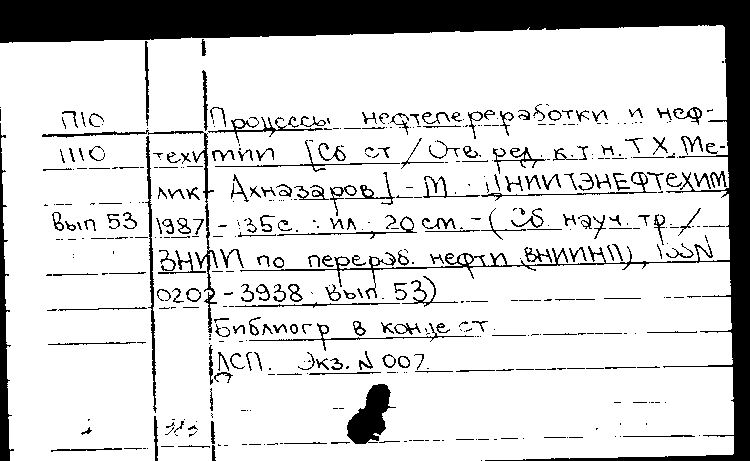 П10 Процессы нефтепереработки и неф-
1110 техимии [Сб ст / Отв. ред. к.т.н. Т Х. Ме-
лик- Ахназаров] - М. : ЦНИИТЭНЕФТЕХИМ,
Вып 53 1987 - 135с. : ил ; 20 см. - ( Сб. науч. тр /
ВНИИ по перераб. нефти (ВНИИНП), ISSN
0202-3938; Вып. 53)
Библиогр в конце ст.
ДСП. Экз. N 007.